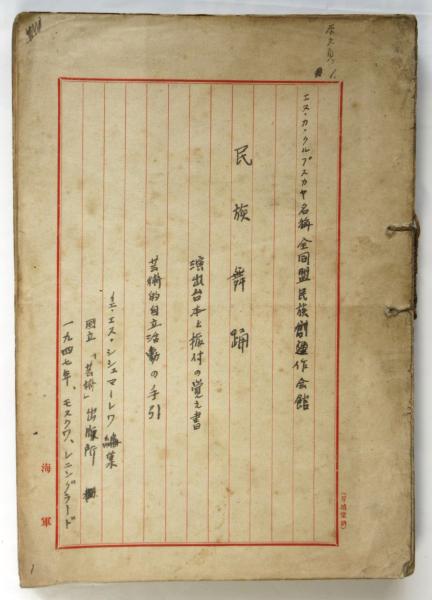 エヌ・カ・クルプスカヤ名称全同盟民族創造作会館
民族舞踊
演出台本と振付の覚え書
芸術的自立活動の手引
イ・エス・シシュマーレワ編集
国立「芸術」出版所
一九四七年、モスクワ、レニングラード
海軍